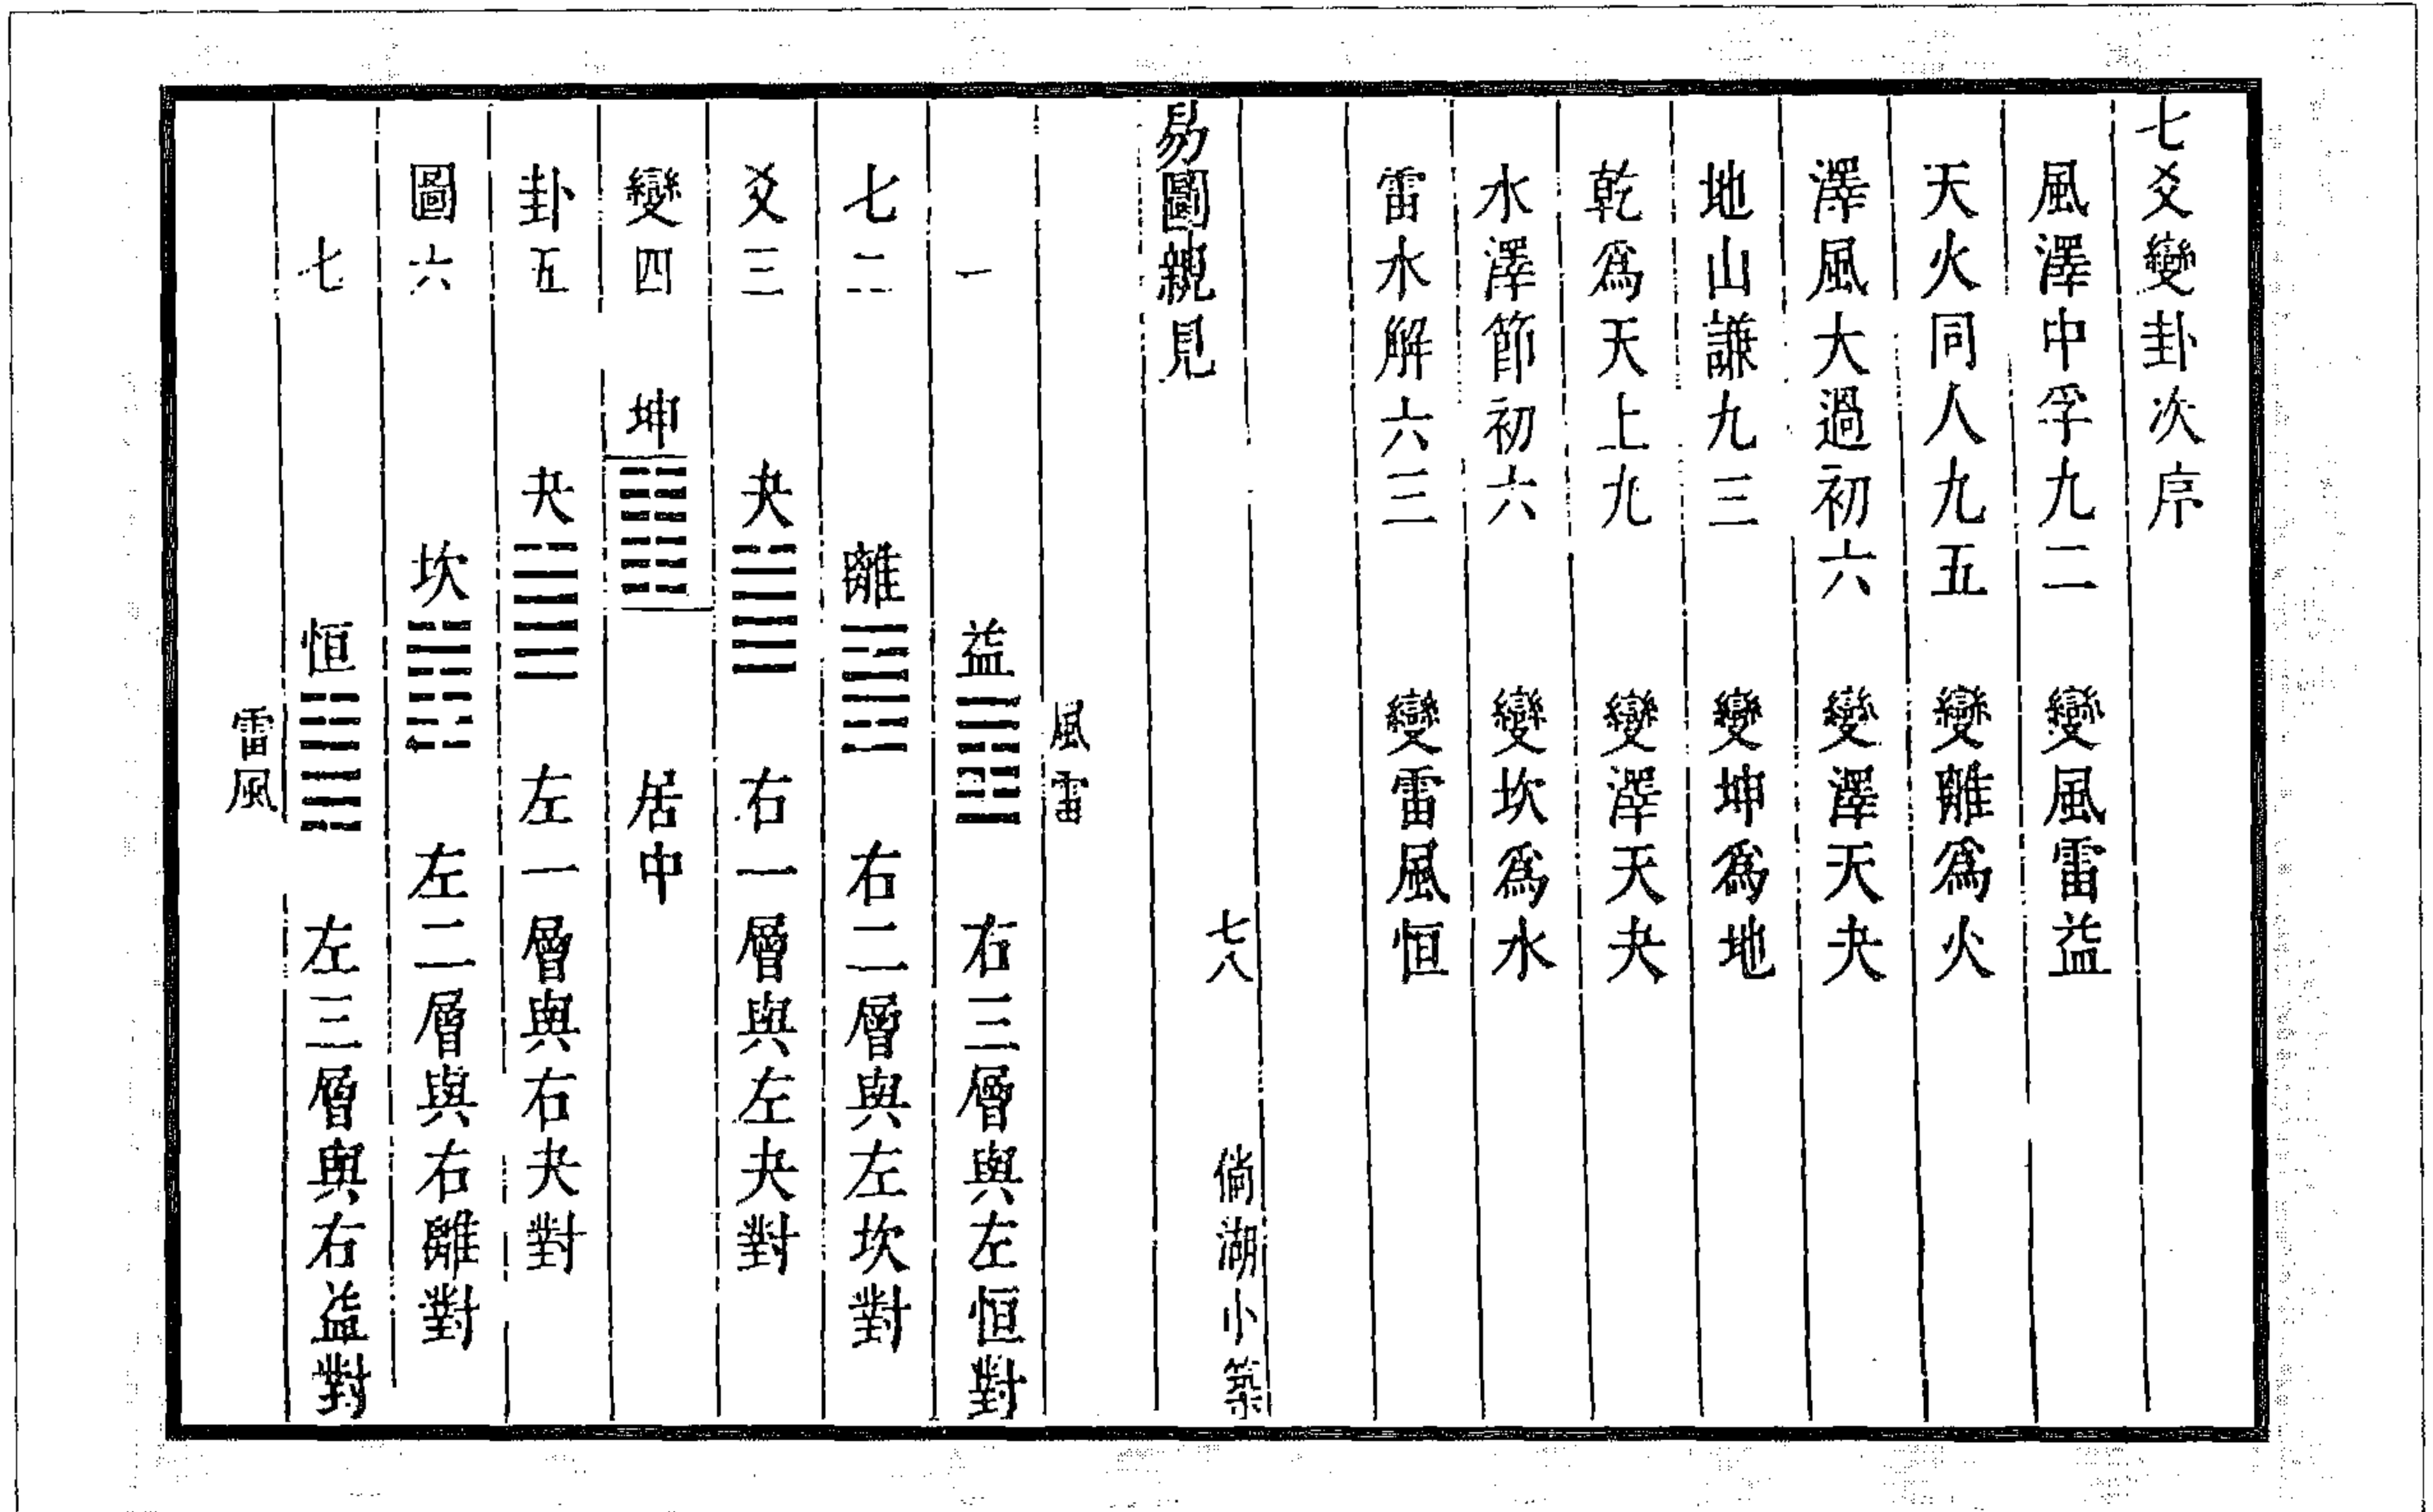 七爻變卦次序
風澤中孚九二 變風雷益
天火同人九五 變離爲火
澤風大過初六 變澤天夬
地山謙九三 變坤爲地
乾爲天上九 變澤天夬
水澤節初六 變坎爲水
雷水解六三 變雷風恒
易圖親見 七八 倘湖小築
風雷
一 益 右三層與左恒對
七二 離 右二層與左坎對
爻三 夬 右一層與左夬對
變四 坤 居中
卦五 夬 左一層與右夬對
圖六 坎 左二層與右離對
七 恒 左三層與右益對
雷風